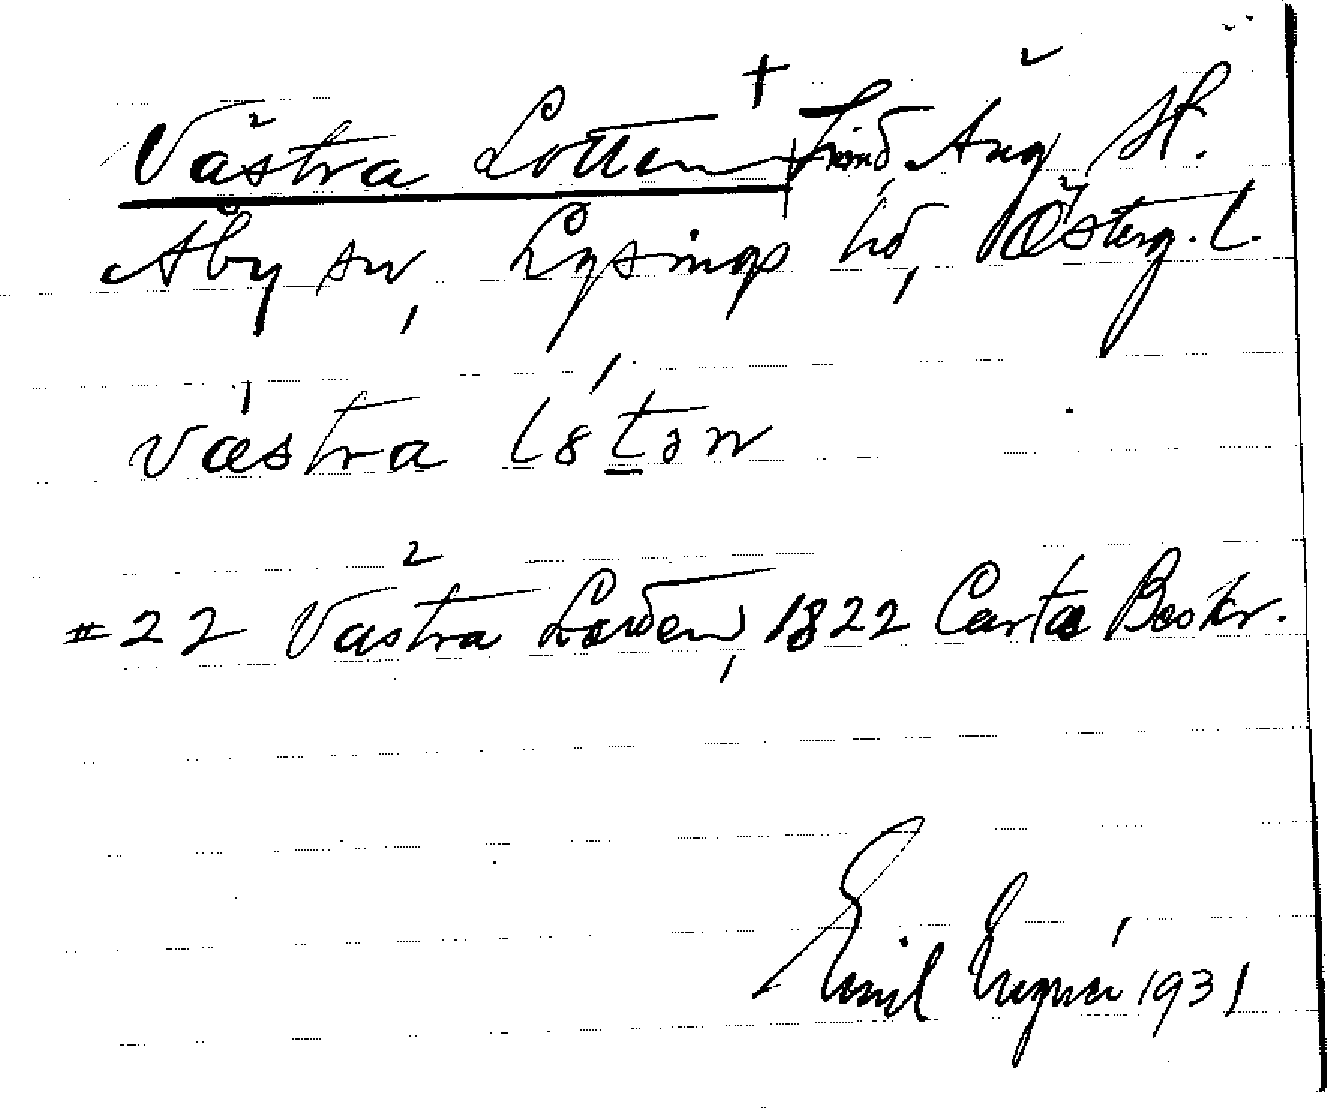 Västra Lotten † Lind, Aug H.
Åby sn, Lysings hd, Österg. l.
västra lótən
#22 Västra Lotten, 1822 Carta Beskr.
Emil 1931